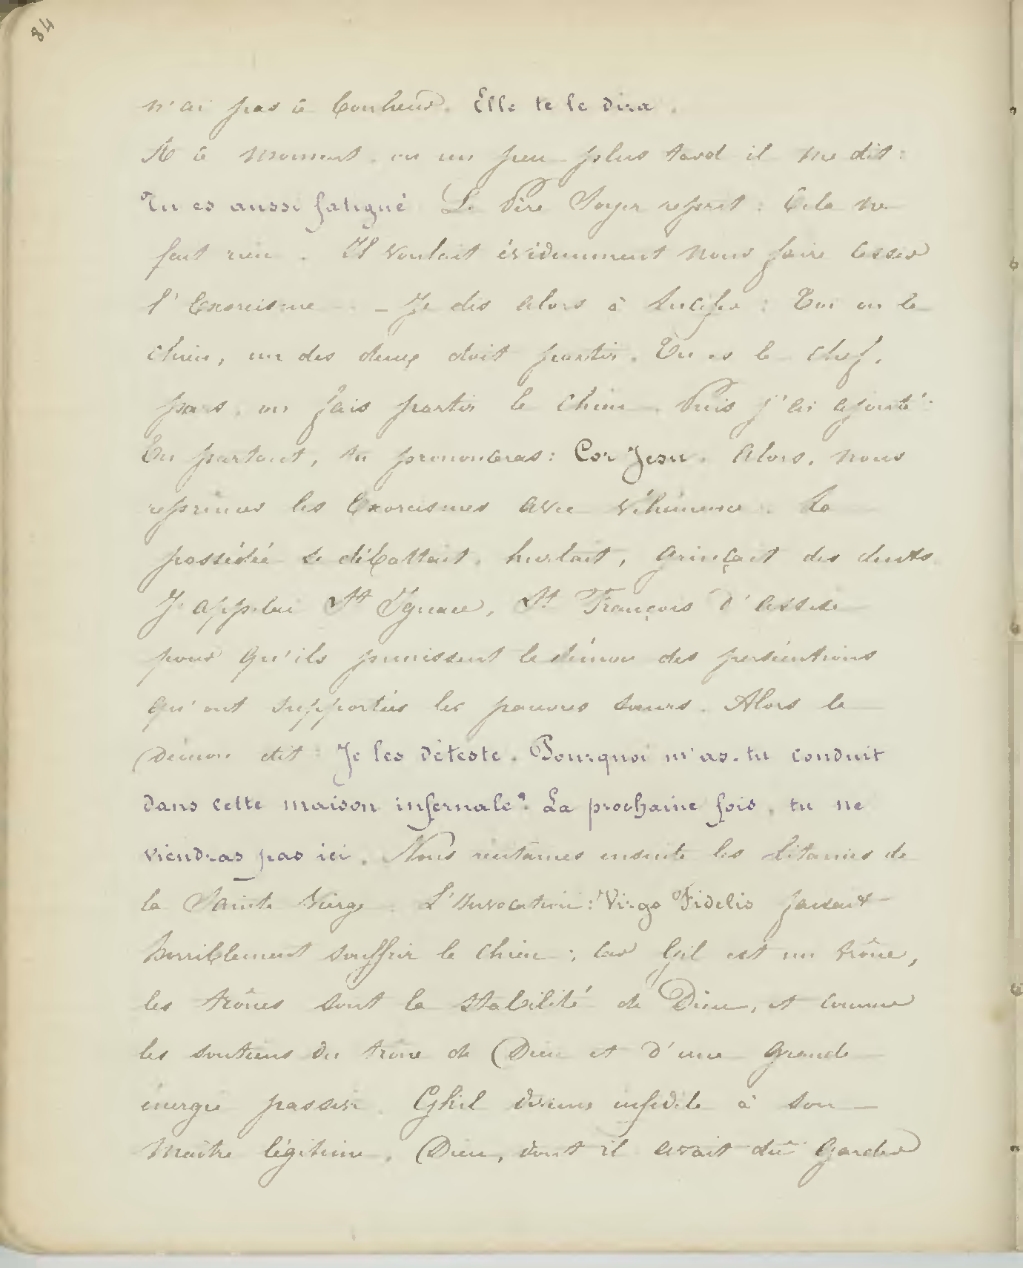 84
n'ai pas ce bonheur. Elle te le dira.
A ce moment, ou un peu plus tard il me dit:
Tu es aussi fatigué Le Père Soyer reprit: Cela ne
fait rien. Il voulait évidemment nous faire cesser
l'Exorcisme - Je dis alors à Lucifer: Toi ou le
Chien, un des deux doit partir. Tu es le chef,
pars, ou fais partir le Chien. Puis j'ai ajouté:
En partant, tu prononceras: Cor Jesu. Alors, nous
reprîmes les Exorcismes avec véhémence. La
possédée se débattait, hurlait, grinçait des dents
J'appelai St Ignace, St François d'Assise
pour qu'ils punissent le démon des persécutions
qu'ont supportées les pauvres soeurs. Alors le
Démon dit: Je les déteste. Pourquoi m'as-tu conduit
dans cette maison infernale? La prochaine fois, tu ne
viendras pas ici. Nous récitâmes ensuite les litanies de
la Sainte Vierge. L'Invocation: Virgo Fidelis faisait
horriblement souffrir le Chien; car Gil est un trône,
les trônes sont la stabilité de Dieu, et comme
les soutiens du trône de Dieu et d'une grande
énergie passive. Ghil devenu infidèle à son
Maître légitime, Dieu, dont il avait dû garder